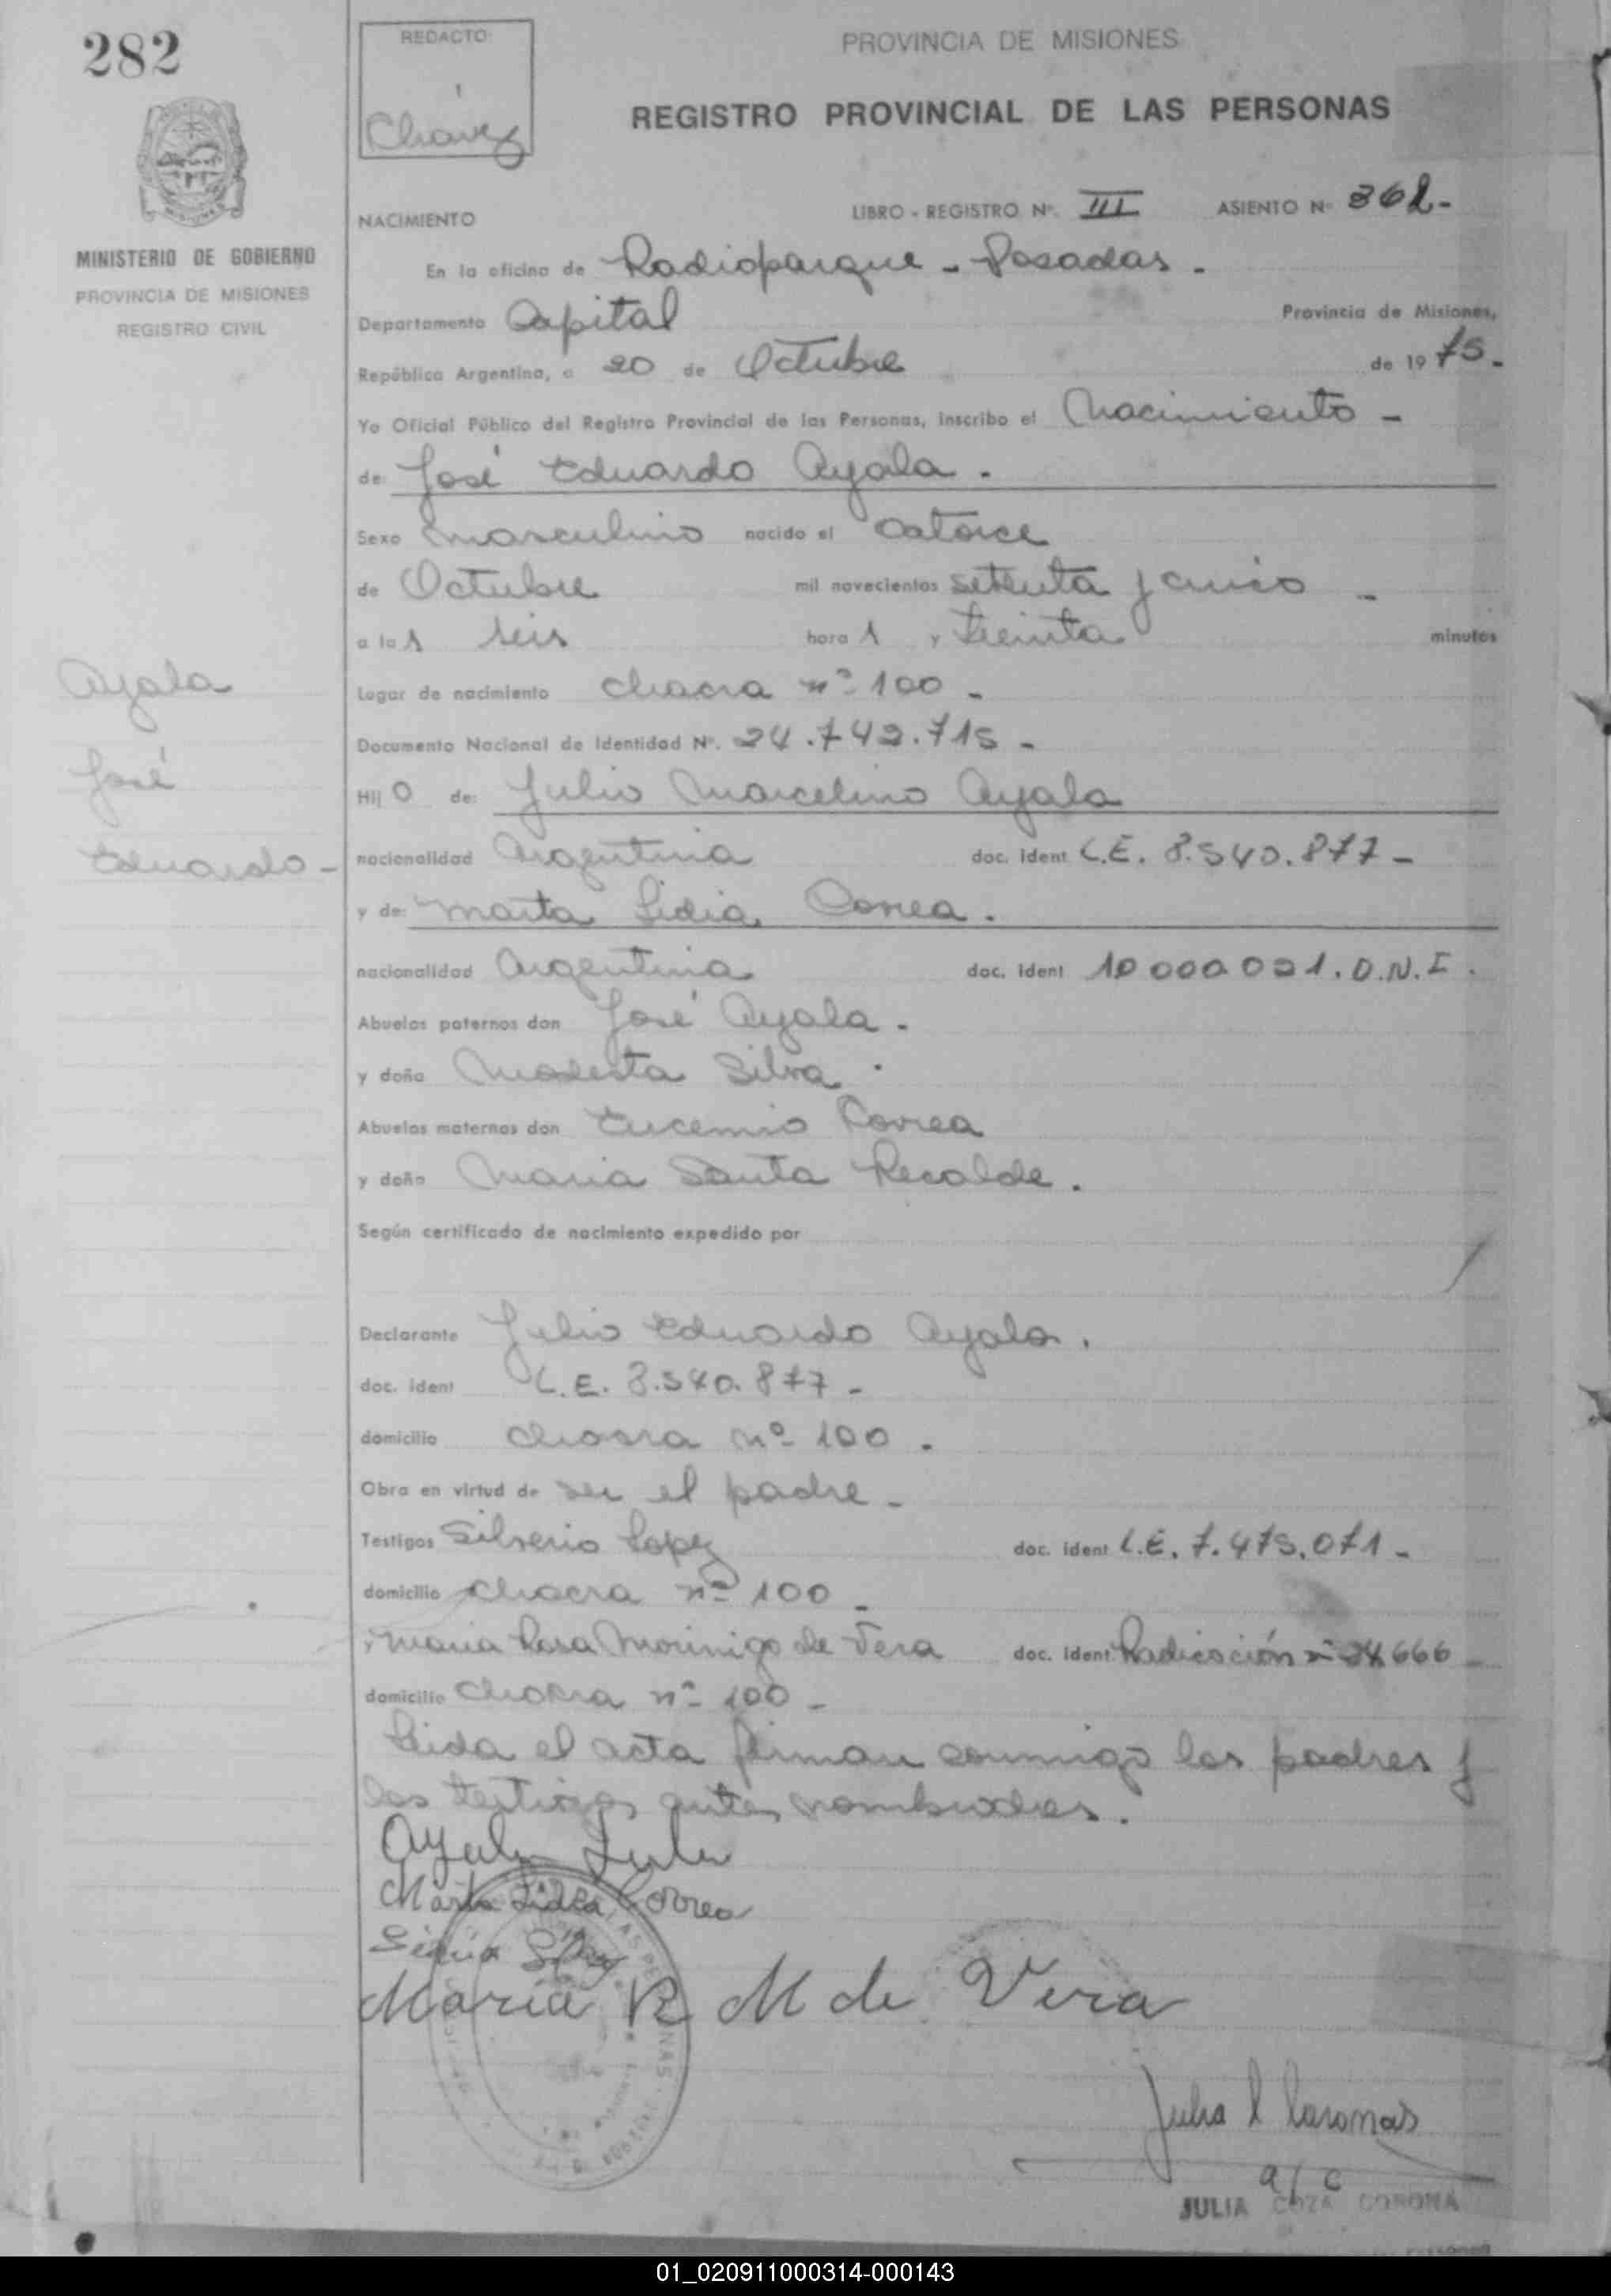 282
REDACTO:
Chavez
PROVINCIA DE MISIONES
REGISTRO PROVINCIAL DE LAS PERSONAS
MISIONES
MINISTERIO DE GOBIERNO
PROVINCIA DE MISIONES
REGISTRO CIVIL
NACIMIENTO
LIBRO - REGISTRO Nº. III ASIENTO Nº 362-
En la oficina de Radioparque - Posadas -
Departamento Capital Provincia de Misiones,
República Argentina, a 20 de Octubre de 1975-
Yo Oficial Público del Registro Provincial de las Personas, inscribo el Nacimiento -
de: José Eduardo Ayala.
Sexo masculino nacido el Catorce
de Octubre mil novecientos setenta y cinco -
a las seis horas y treinta minutos
Ayala
José
Eduardo-
Lugar de nacimiento chacra nº 100 -
Documento Nacional de Identidad Nº. 24.742.715 -
Hijo de: Julio Marcelino Ayala
nacionalidad Argentina doc. ident L.E. 8.540.877 -
y de: Marta Lidia Correa.
nacionalidad Argentina doc. ident 10000021. D.N.I.
Abuelos paternos don José Ayala.
y doña Modesta Silva.
Abuelos maternos don Eucemio Correa
y doña Maria Santa Recalde.
Según certificado de nacimiento expedido por
Declarante Julio Eduardo Ayala.
doc. ident L.E. 8.540.877 -
domicilio chacra nº 100.
Obra en virtud de ser el padre -
Testigos Silverio Lopez doc. ident L.E. 7.475.071 -
domicilio chacra nº 100 -
y Maria Rosa Morinigo de Vera doc. ident. Radicación nº 24.666 -
domicilio chacra nº 100 -
Leida el acta firman conmigo los padres y
los testigos antes nombrados.
Ayala Julio
Marta Lidia Correa
Maria R M de Vera
Julia
a/c
JULIA COZA CORONA
01_020911000314-000143